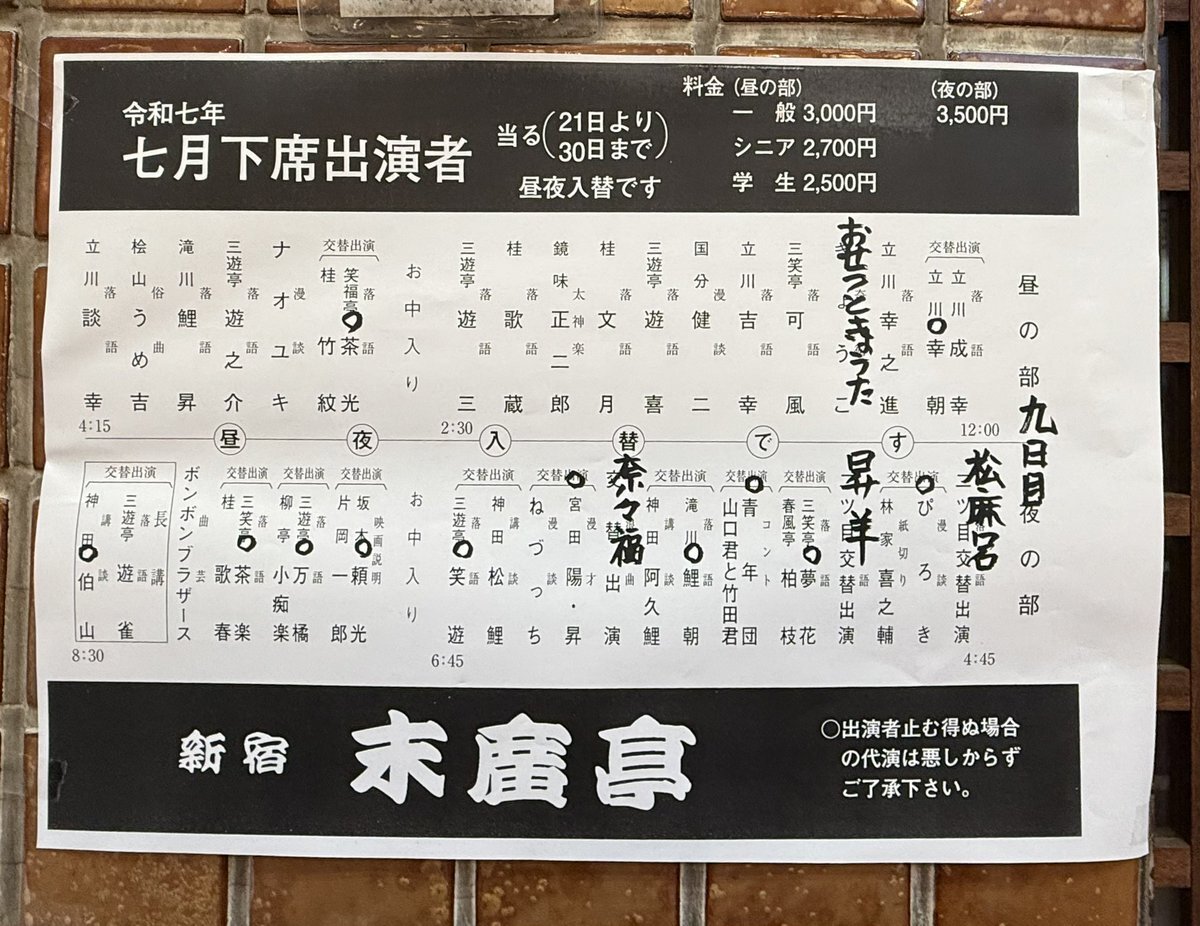 令和七年
七月下席出演者
当る(21日より
30日まで)
昼夜入替です
料金 (昼の部)
一般 3,000円
シニア 2,700円
学生 2,500円
(夜の部)
3,500円
昼の部
九日目
12:00
交替出演
落語
立川成幸
立川幸朝
落語
立川幸之進
おせつときょうた
落語
三笑亭可風
落語
立川吉幸
漫談
国分健二
落語
三遊亭遊喜
落語
桂文月
太神楽
鏡味正二郎
落語
桂歌蔵
落語
三遊亭遊三
2:30
お中入り
交替出演
落語
笑福亭茶光
桂竹紋
漫談
ナオユキ
落語
三遊亭遊之介
落語
滝川鯉昇
俗曲
桧山うめ吉
落語
立川談幸
4:15
昼夜入替です
夜の部
4:45
松麻呂
二ツ目交替出演
交替出演
漫談
ぴろき
紙切り
林家喜之輔
昇羊
二ツ目交替出演
交替出演
落語
三笑亭夢花
春風亭柏枝
交替出演
コント
青年団
山口君と竹田君
交替出演
落語
滝川鯉朝
講談
神田阿久鯉
奈々福
交替出演
交替出演
漫才
宮田陽・昇
漫談
ねづっち
講談
神田松鯉
落語
三遊亭笑遊
6:45
お中入り
交替出演
映画説明
坂本頼光
片岡一郎
交替出演
落語
三遊亭万橘
柳亭小痴楽
交替出演
落語
三笑亭茶楽
桂歌春
曲芸
ボンボンブラザース
交替出演
長講
落語
三遊亭遊雀
講談
神田伯山
8:30
新宿 末廣亭
○出演者止む得ぬ場合
の代演は悪しからず
ご了承下さい。